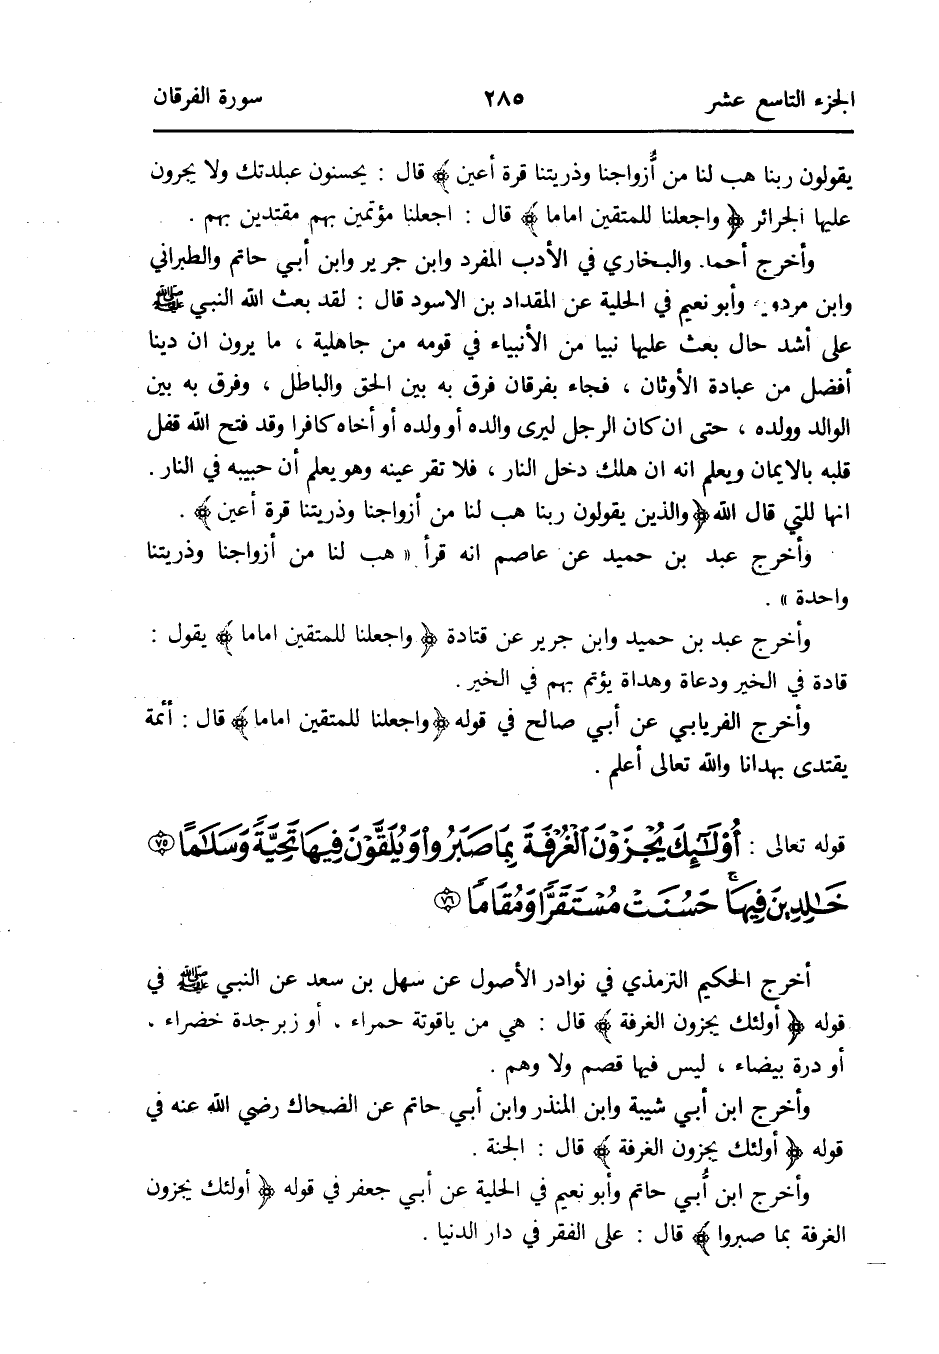 الجزء التاسع عشر ٢٨٥ سورة الفرقان
يقولون ربنا هب لنا من أزواجنا وذريتنا قرة أعين ﴾ قال : يحسنون عبلدتك ولا يجرون
عليها الجرائر ﴿ واجعلنا للمتقين اماما ﴾ قال : اجعلنا مؤتمين بهم مقتدين بهم .
وأخرج أحمد. والبخاري في الأدب المفرد وابن جرير وابن أبي حاتم والطبراني
وابن مردويه وأبو نعيم في الحلية عن المقداد بن الاسود قال : لقد بعث الله النبي ﷺ
على أشد حال بعث عليها نبيا من الأنبياء في قومه من جاهلية ، ما يرون ان دينا
أفضل من عبادة الأوثان ، فجاء بفرقان فرق به بين الحق والباطل ، وفرق به بين
الوالد وولده ، حتى ان كان الرجل ليرى والده أو ولده أو أخاه كافرا وقد فتح الله قفل
قلبه بالايمان ويعلم انه ان هلك دخل النار ، فلا تقر عينه وهو يعلم أن حبيبه في النار .
انها للتي قال الله ﴿ والذين يقولون ربنا هب لنا من أزواجنا وذريتنا قرة أعين ﴾ .
وأخرج عبد بن حميد عن عاصم انه قرأ « هب لنا من أزواجنا وذريتنا
واحدة » .
وأخرج عبد بن حميد وابن جرير عن قتادة ﴿ واجعلنا للمتقين اماما ﴾ يقول :
قادة في الخير ودعاة وهداة يؤتم بهم في الخير .
وأخرج الفريابي عن أبي صالح في قوله ﴿ واجعلنا للمتقين اماما ﴾ قال : أئمة
يقتدى بهدانا والله تعالى أعلم .
قوله تعالى : أُوْلَٰٓئِكَ يُجۡزَوۡنَ ٱلۡغُرۡفَةَ بِمَا صَبَرُواْ وَيُلَقَّوۡنَ فِيهَا تَحِيَّةٗ وَسَلَٰمًا ٧٥
خَٰلِدِينَ فِيهَاۚ حَسُنَتۡ مُسۡتَقَرّٗا وَمُقَامٗا ٧٦
أخرج الحكيم الترمذي في نوادر الأصول عن سهل بن سعد عن النبي ﷺ في
قوله ﴿ أولئك يجزون الغرفة ﴾ قال : هي من ياقوتة حمراء ، أو زبرجدة خضراء ،
أو درة بيضاء ، ليس فيها قصم ولا وهم .
وأخرج ابن أبي شيبة وابن المنذر وابن أبي حاتم عن الضحاك رضي الله عنه في
قوله ﴿ أولئك يجزون الغرفة ﴾ قال : الجنة .
وأخرج ابن أبي حاتم وأبو نعيم في الحلية عن أبي جعفر في قوله ﴿ أولئك يجزون
الغرفة بما صبروا ﴾ قال : على الفقر في دار الدنيا .